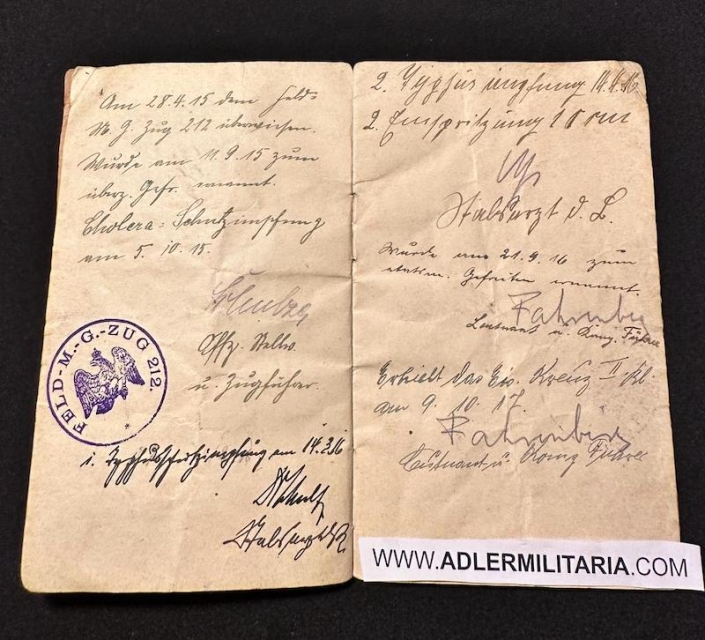 Am 28.4.15 dem Feld=
M. G. Zug 212 überwiesen.
Wurde am 11.9.15 zum
überz. Gefr. ernannt.
Cholera=Schutzimpfung
am 5. 10. 15.
Offz. Stellv.
u. Zugführer.
FELD-M.-G.-ZUG 212.
1. Typhusschutzimpfung am 14.3.16
Stabsarzt d. R.
2. Typhus impfung 14.4.16
2. Einspritzung 1 ccm
Stabsarzt d. L.
Wurde am 21.9.16 zum
etatsm. Gefreiten ernannt.
Leutnant u. Komp. Führer
Erhielt das Eis. Kreuz II. Kl.
am 9. 10. 17.
Leutnant u. Komp. Führer
WWW.ADLERMILITARIA.COM